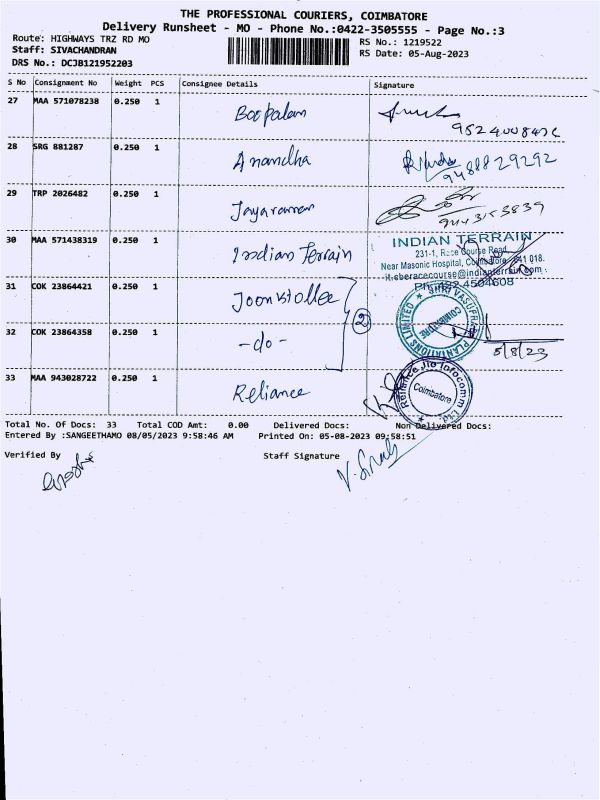 THE PROFESSIONAL COURIERS, COIMBATORE
Delivery Runsheet - MO - Phone No.:0422-3505555 - Page No.:3
Route: HIGHWAYS TRZ RD MO
RS No.: 1219522
Staff: SIVACHANDRAN
RS Date: 05-Aug-2023
DRS No.: DCJB121952203
S No Consignment No Weight PCS Consignee Details Signature
27 MAA 571078238 0.250 1 Boopalan
9524008476
28 SRG 881287 0.250 1 Anandha
9488829292
29 TRP 2026482 0.250 1 Jayaraman
9443153839
30 MAA 571438319 0.250 1 Indian Terrain
INDIAN TERRAIN
231-1, Race Course Road,
Near Masonic Hospital, Coimbatore - 641 018.
Ph: 4504608
31 COK 23864421 0.250 1
32 COK 23864358 0.250 1 -do-
2
PLANTATIONS LIMITED
COIMBATORE
5/8/23
33 MAA 943028722 0.250 1 Reliance
Reliance Jio Infocomm Ltd.
Coimbatore
Total No. Of Docs: 33 Total COD Amt: 0.00 Delivered Docs: Non Delivered Docs:
Entered By :SANGEETHAMO 08/05/2023 9:58:46 AM Printed On: 05-08-2023 09:58:51
Verified By Staff Signature